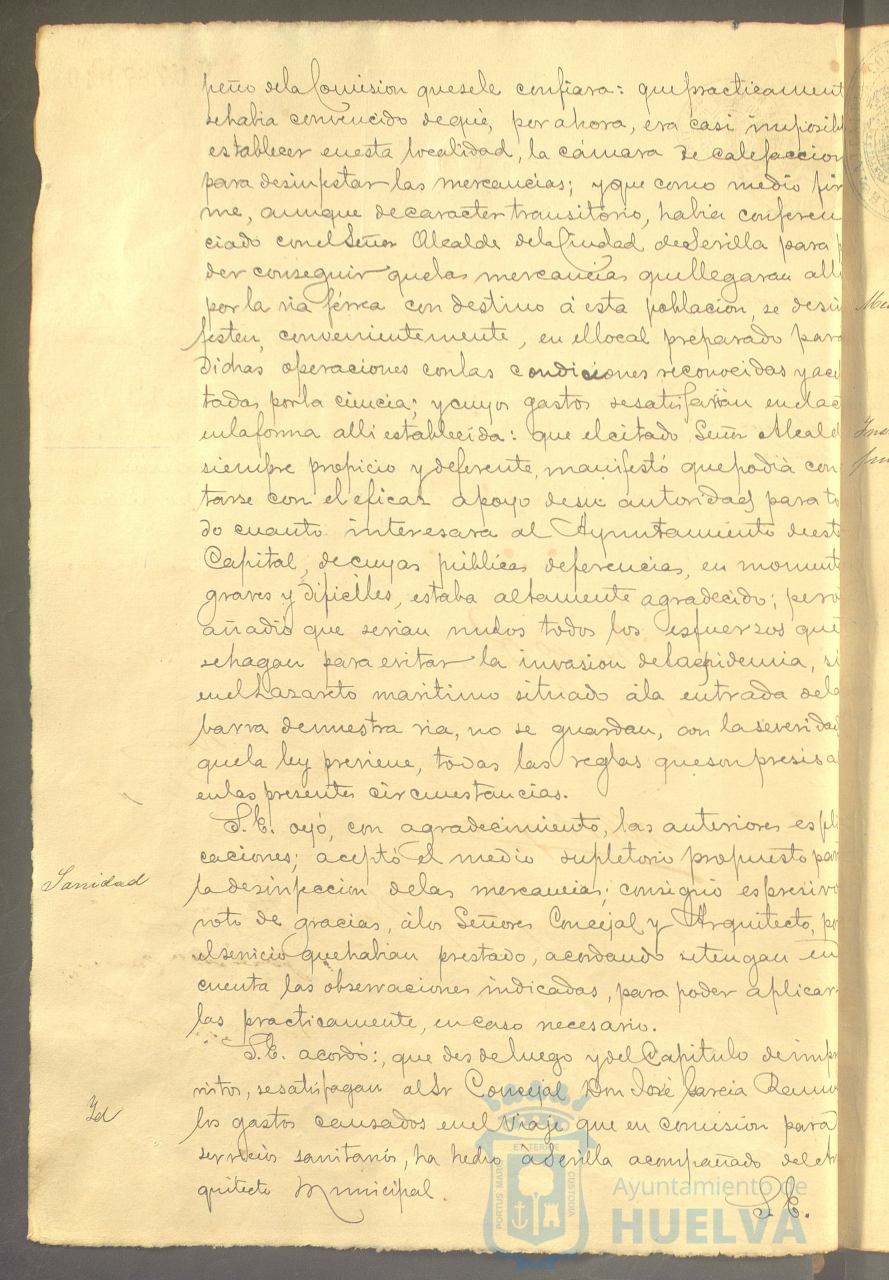 peño dela Comision quesele confiara: quepracticament
sehabia convencido deque, por ahora, era casi imposibl
establecer enesta localidad, la cámara de calefaccion
para desinfestar las mercancias; yque como medio fir
me, aunque decaracter transitorio, habia conferen
ciado conel Señor Alcalde dela Ciudad de Sevilla para p
der conseguir quelas mercancias quellegaran alli
por la via férrea con destino á esta poblacion, se desin
festen, convenientemente, en ellocal preparado para
dichas operaciones conlas condiciones reconocidas y acep
tadas por la ciencia; y cuyos gastos sesatisfarian
enlaforma alli establecida: que elcitado Señor Alcald
siempre propicio y deferente, manifestó quepodiá con
tarse con el eficaz apoyo desu autoridad para to
do cuanto interesara al Ayuntamiento deest
Capital, decuyas públicas deferencias, en moment
graves y dificiles, estaba altamente agradecido; pero
añadió que serian nulos todos los esfuerzos que
sehagan para evitar la invasion delaepidemia, si
enel Lazareto maritimo situado ála entrada dela
barra denuestra ria, no se guardan, con laseveridad
quela ley previene, todas las reglas queson presisa
enlas presentes circunstancias.
S.E. oyó, con agradecimiento, las anteriores espli
caciones; aceptó el medio supletorio propuesto para
la desinfeccion delas mercancias; consignó espresivo
voto de gracias, álos Señores Concejal y Arquitecto, po
elservicio quehabian prestado, acordando setengan en
cuenta las observaciones indicadas, para poder aplicar
las practicamente, encaso necesario.
Sanidad
S.E. acordó:, que desdeluego y del Capitulo deimpre
vistos, sesatisfagan al Sr Concejal Don José Garcia Ramo
los gastos causados enel viaje que en comision para
servicios sanitarios, ha hecho á Sevilla acompañado del Ar
quitecto Municipal.
Id
S.E.
PORTUS MARIS
ET TERRE
CUSTODIA
Ayuntamiento de
HUELVA